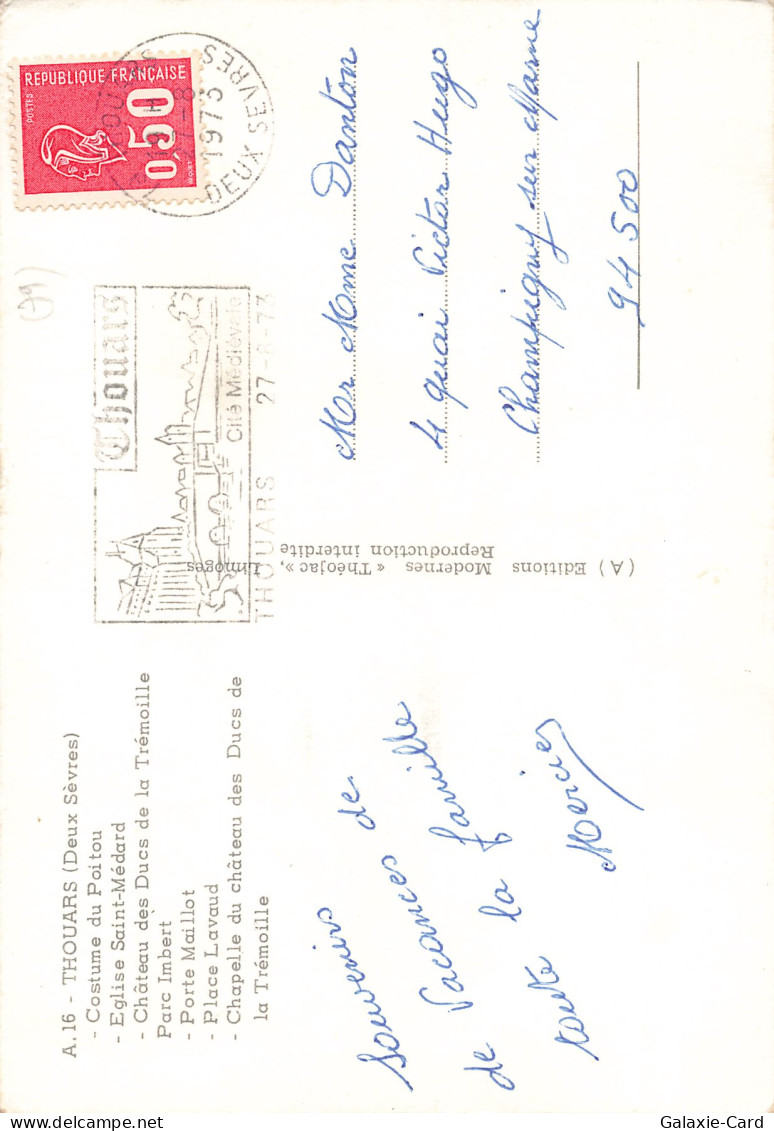 A.16 - THOUARS (Deux Sèvres)
- Costume du Poitou
- Eglise Saint-Médard
- Château des Ducs de la Trémoille
Parc Imbert
- Porte Maillot
- Place Lavaud
- Chapelle du château des Ducs de
la Trémoille
Souvenirs de
de Vacances de
de la famille
toute la
Mercier
(A) Editions Modernes « Théojac », Limoges
Reproduction interdite
Thouars
Cité Médiévale
THOUARS 27-8-73
REPUBLIQUE FRANÇAISE
POSTES
0,50
THOUARS
19 H
27-8
1973
DEUX SEVRES
(79)
Mr Mme Danton
4 quai Victor Hugo
Champigny sur Marne
94500
Galaxie-Card